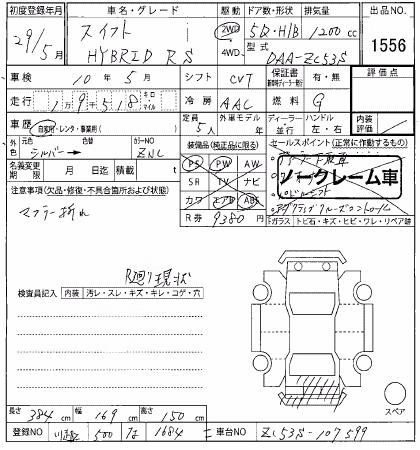 初度登録年月 車名・グレード 駆動 ドア数・形状 排気量 出品NO.
29/5月 スイフト HYBRID RS 2WD 4WD 5D・H/B 1200cc 1556
型式 DAA-ZC53S
車検 10年5月 シフト CVT 保証書 有・無 評価点
走行 1万9518 キロ マイル 冷房 AAC 燃料 G
車歴 自家用・レンタ・事業用( ) 定員 5人 外車モデル 年 ディーラー 並行 ハンドル 左・右 内装評価
外色 元色 シルバー 色替 カラーNO ZNC 装備品(純正品に限る) セールスポイント(正常に作動するもの)
名義変更期限 月 日迄 積載 t PS PW AW
SR TV ナビ ノークレーム車
注意事項(欠品・修復・不具合箇所および状態) カワ エアB ABS
マフラー折れ R券 9380円 ガラス トビ石・キズ・ヒビ・ワレ・リペア跡
R廻り現状
検査員記入 内装 汚レ・スレ・キズ・キレ・コゲ・穴
スペア
長さ 384cm 幅 169cm 高さ 150cm
登録NO 500 1684 車台NO ZC53S-107599